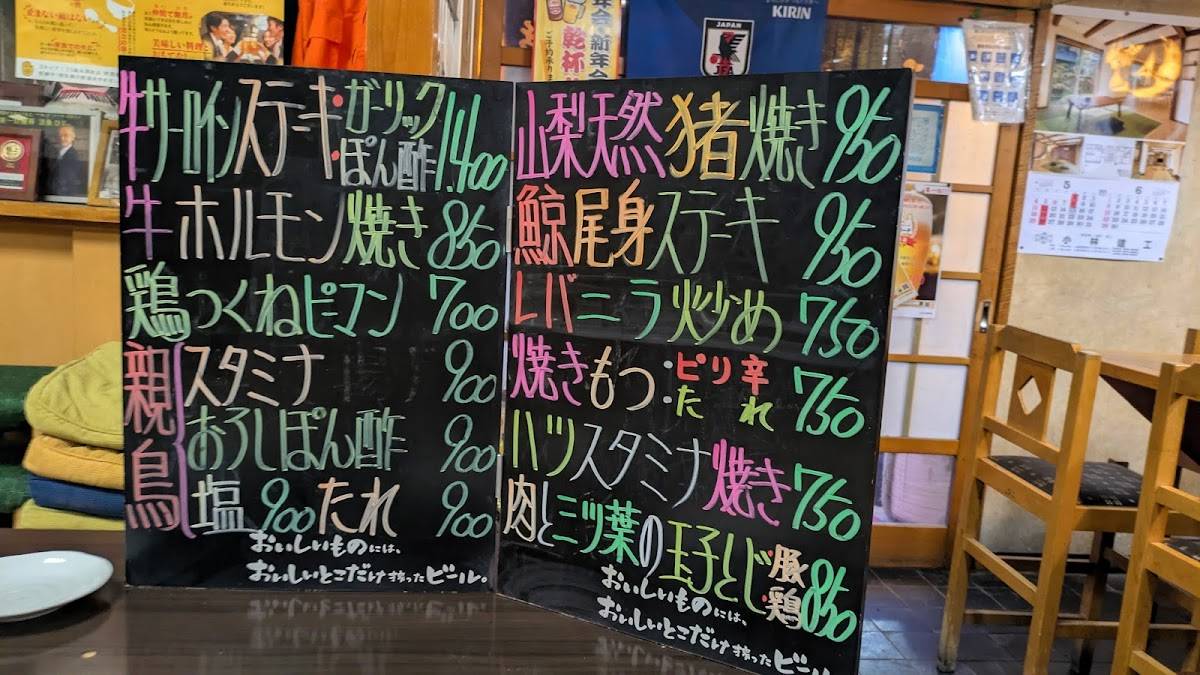 牛サーロインステーキ・ガーリックぽん酢 1.400
牛ホルモン焼き 850
鶏つくねピーマン 700
親鳥
スタミナ 900
おろしぽん酢 900
塩 900 たれ 900
おいしいものには、
おいしいとこだけ搾ったビール。
山梨天然猪焼き 950
鯨尾身ステーキ 950
レバニラ炒め 750
焼きもつ・ピリ辛たれ 750
ハツスタミナ焼き 750
肉と三ツ葉の玉子とじ・豚・鶏 850
おいしいものには、
おいしいとこだけ搾ったビール
JAPAN
JFA
KIRIN
忘年会・新年会
乾杯
美味しい料理と
5 6
小林建工